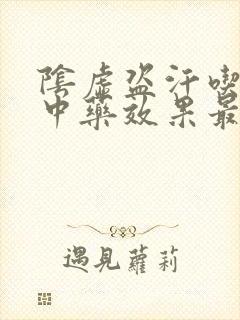 陰虛盜汗喫
中藥效果最
遇見蘿莉